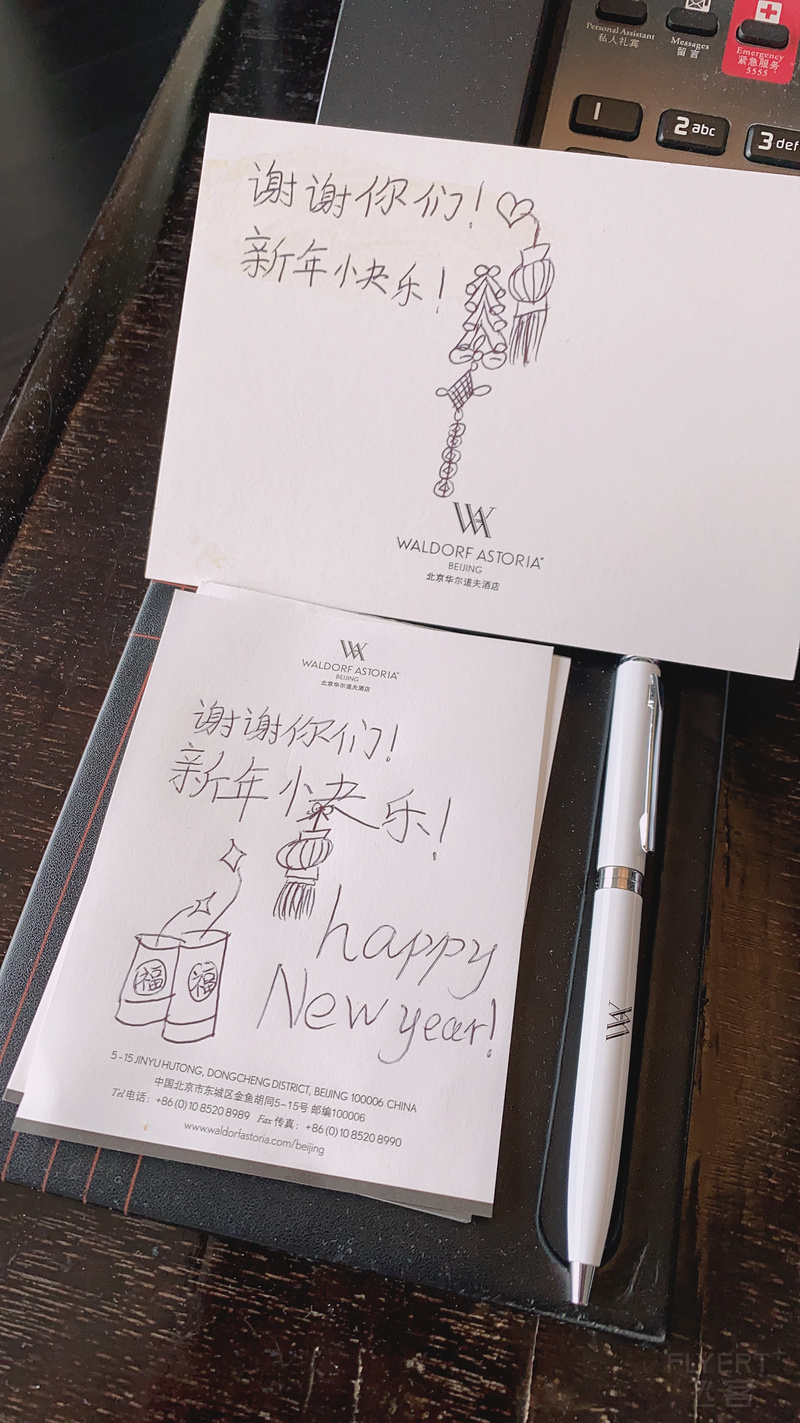 Personal Assistant
私人礼宾
Messages
留言
Emergency
紧急服务
5555
1
2 abc
3 def
谢谢你们！
新年快乐！
WALDORF ASTORIA
BEIJING
北京华尔道夫酒店
WALDORF ASTORIA
BEIJING
北京华尔道夫酒店
谢谢你们！
新年快乐！
福 福
happy
New year!
5-15 JINYU HUTONG, DONGCHENG DISTRICT, BEIJING 100006 CHINA
中国北京市东城区金鱼胡同5-15号 邮编100006
Tel 电话：+86 (0) 10 8520 8989 Fax 传真：+86 (0) 10 8520 8990
www.waldorfastoria.com/beijing
FLYERT
飞客